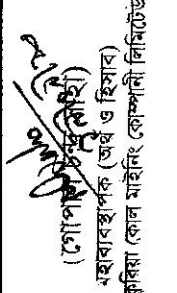 (গোপাল চন্দ্র সাহা)
মহাব্যবস্থাপক (অর্থ ও হিসাব)
কোল মাইনিং কোম্পানী লিমিটেড